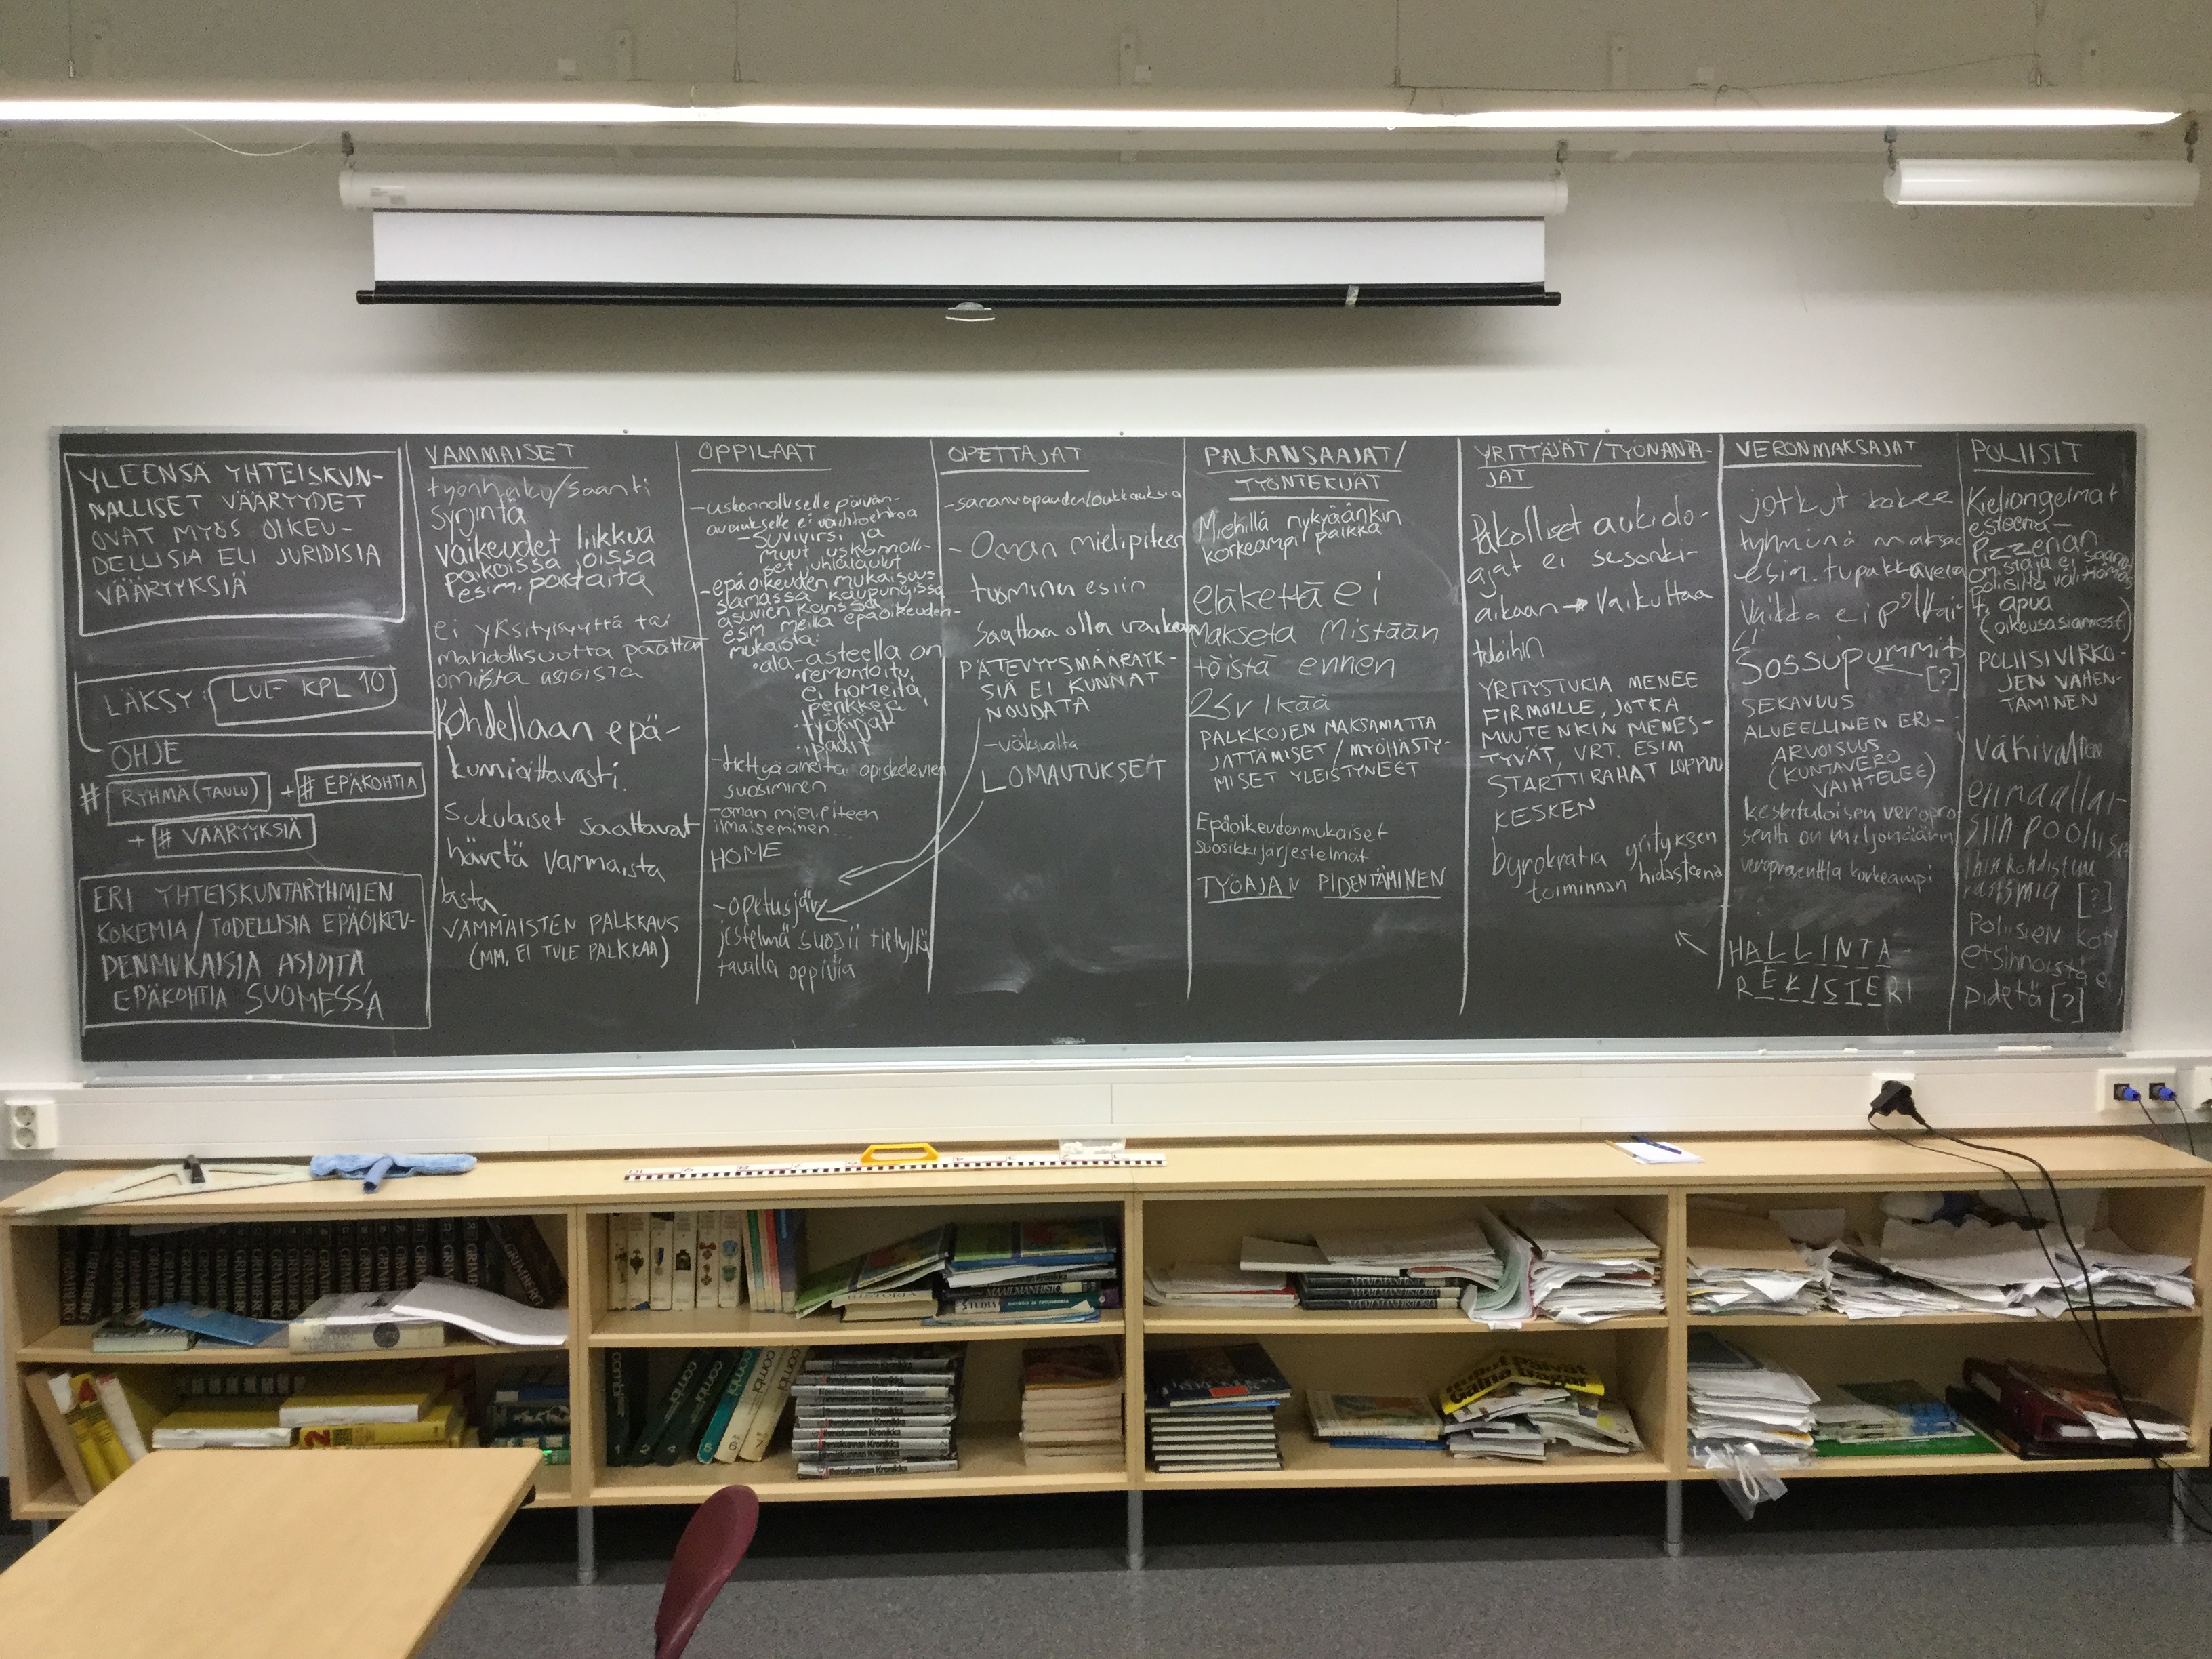 YLEENSÄ YHTEISKUN-
NALLISET VÄÄRYYDET
OVAT MYÖS OIKEU-
DELLISIA ELI JURIDISIA
VÄÄRYYKSIÄ
LÄKSY: LUE KPL 10
OHJE
# RYHMÄ (TAULU) + # EPÄKOHTIA
+ # VÄÄRYYKSIÄ
ERI YHTEISKUNTARYHMIEN
KOKEMIA/TODELLISIA EPÄOIKEU-
DENMUKAISIA ASIOITA
EPÄKOHTIA SUOMESSA
VAMMAISET
työnhaku/saanti
syrjintä
vaikeudet liikkua
paikoissa joissa
esim. portaita
ei yksityisyyttä tai
mahdollisuutta päättää
omista asioista
Kohdellaan epä-
kunnioittavasti.
Sukulaiset saattavat
hävetä vammaista
lasta
VAMMAISTEN PALKKAUS
(MM, EI TULE PALKKAA)
OPPILAAT
-uskonnolliselle päivän-
avaukselle ei vaihtoehtoa
-suvivirsi ja
muut uskonnolli-
set juhlalaulut
-epäoikeudenmukaisuus
samassa kaupungissa
asuvien kanssa
esim meillä epäoikeuden-
mukaista:
•ala-asteella on
•remontoitu,
ei homeita,
penkkejä,
•työkirjat
•ipadit
-tiettyä aineita opiskelevien
suosiminen
-oman mielipiteen
ilmaiseminen...
HOME
-opetusjär-
jestelmä suosii tietyllä
tavalla oppivia
OPETTAJAT
-sananvapauden loukkauksia
- Oman mielipiteen
tuominen esiin
saattaa olla vaikeaa
PÄTEVYYSMÄÄRÄYK-
SIÄ EI KUNNAT
NOUDATA
-väkivalta
LOMAUTUKSET
PALKANSAAJAT/
TYÖNTEKIJÄT
Miehillä nykyäänkin
korkeampi palkka
eläkettä ei
makseta mistään
töistä ennen
25v ikää
PALKKOJEN MAKSAMATTA
JÄTTÄMISET / MYÖHÄSTY-
MISET YLEISTYNEET
Epäoikeudenmukaiset
suosikkijärjestelmät
TYÖAJAN PIDENTÄMINEN
YRITTÄJÄT/TYÖNANTA-
JAT
Pakolliset aukiolo-
ajat ei sesonki-
aikaan → Vaikuttaa
tuloihin
YRITYSTUKIA MENEE
FIRMOILLE, JOTKA
MUUTENKIN MENES-
TYVÄT, VRT. ESIM
STARTTIRAHAT LOPPUU
KESKEN
byrokratia yrityksen
toiminnan hidasteena
VERONMAKSAJAT
jotkut kokee
tyhminä maksaa
esim. tupakkaveroa
Vaikka ei polttai-
si
Sossupummit
[?]
SEKAVUUS
ALUEELLINEN ERI-
ARVOISUUS
(KUNTAVERO
VAIHTELEE)
keskituloisen veropro
sentti on miljonäärin
veroprosenttia korkeampi
HALLINTA-
REKISTERI
POLIISIT
Kieliongelmat
esteenä-
Pizzerian
omistaja ei saanut
poliisilta välitöntä
apua
(oikeusasiamies)
POLIISIVIRKO-
JEN VÄHEN-
TÄMINEN
Väkivallan
ennaltaeh-
Poliisien koti
etsinnöistä ei
pidetä [?]
GRIMBERG
HISTORIA
STUDIA
MAAILMANHISTORIA
MAAILMANHISTORIA
MAAILMANHISTORIA
combi
1
combi
2
combi
4
combi
5
combi
6
Ihmiskunnan Kronikka
Ihmiskunnan Kronikka
Ihmiskunnan Kronikka
Ihmiskunnan Kronikka